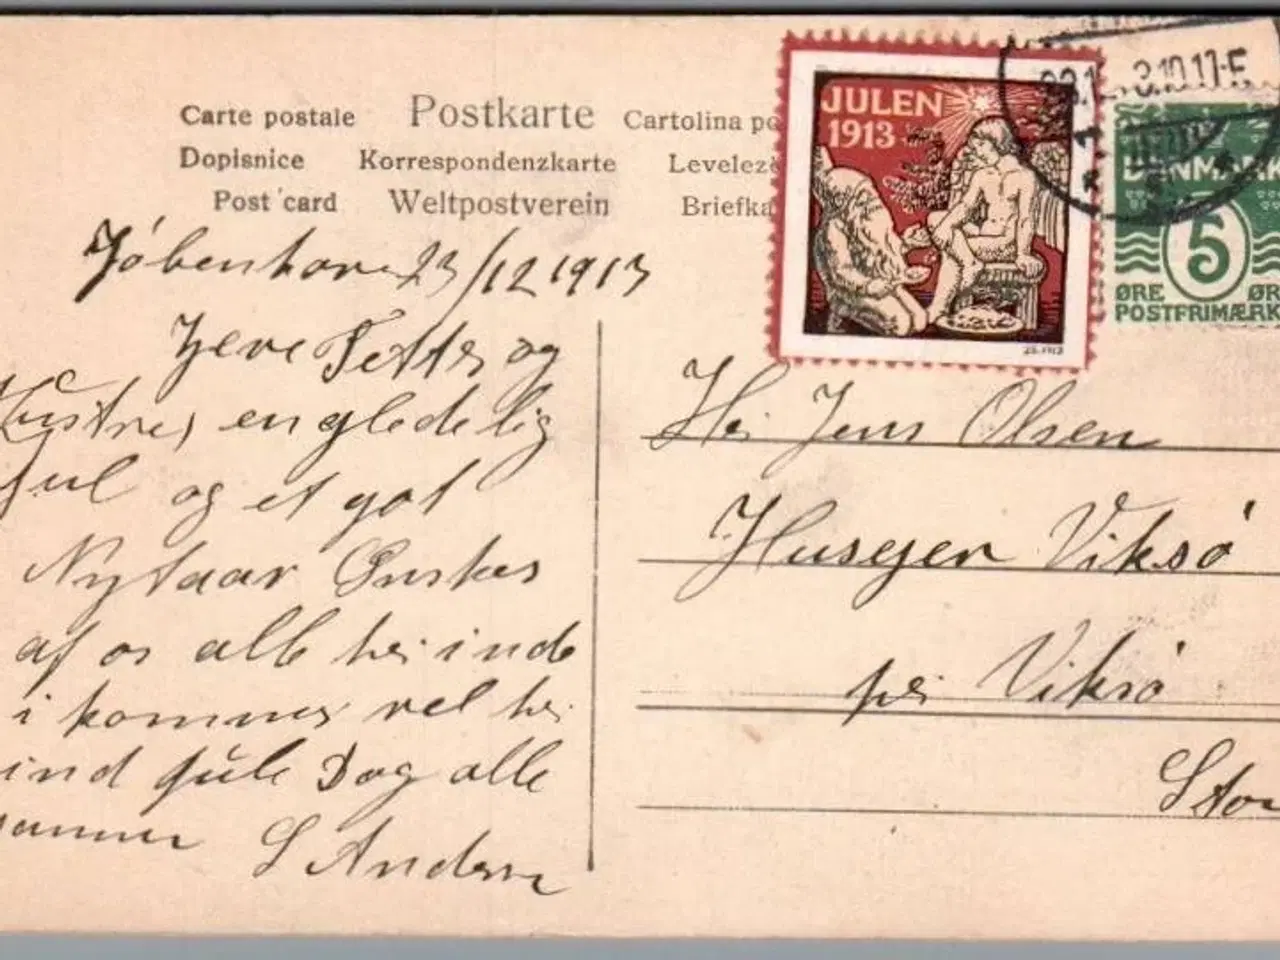 Carte postale Postkarte Cartolina po
Dopisnice Korrespondenzkarte Levelez
Post card Weltpostverein Briefka
JULEN
1913
DANMARK
5
ØRE ØR
POSTFRIMÆRK
Köbenhavn 23/12 1913
og
Hustru, en gledelig
Jul og et got
Nytaar Önskes
af os alle her inde
i kommer vel her
ind Jule Dag alle
sammen S Andersen
Hr Jens Olsen
Husejer Viksö
pr Viksö